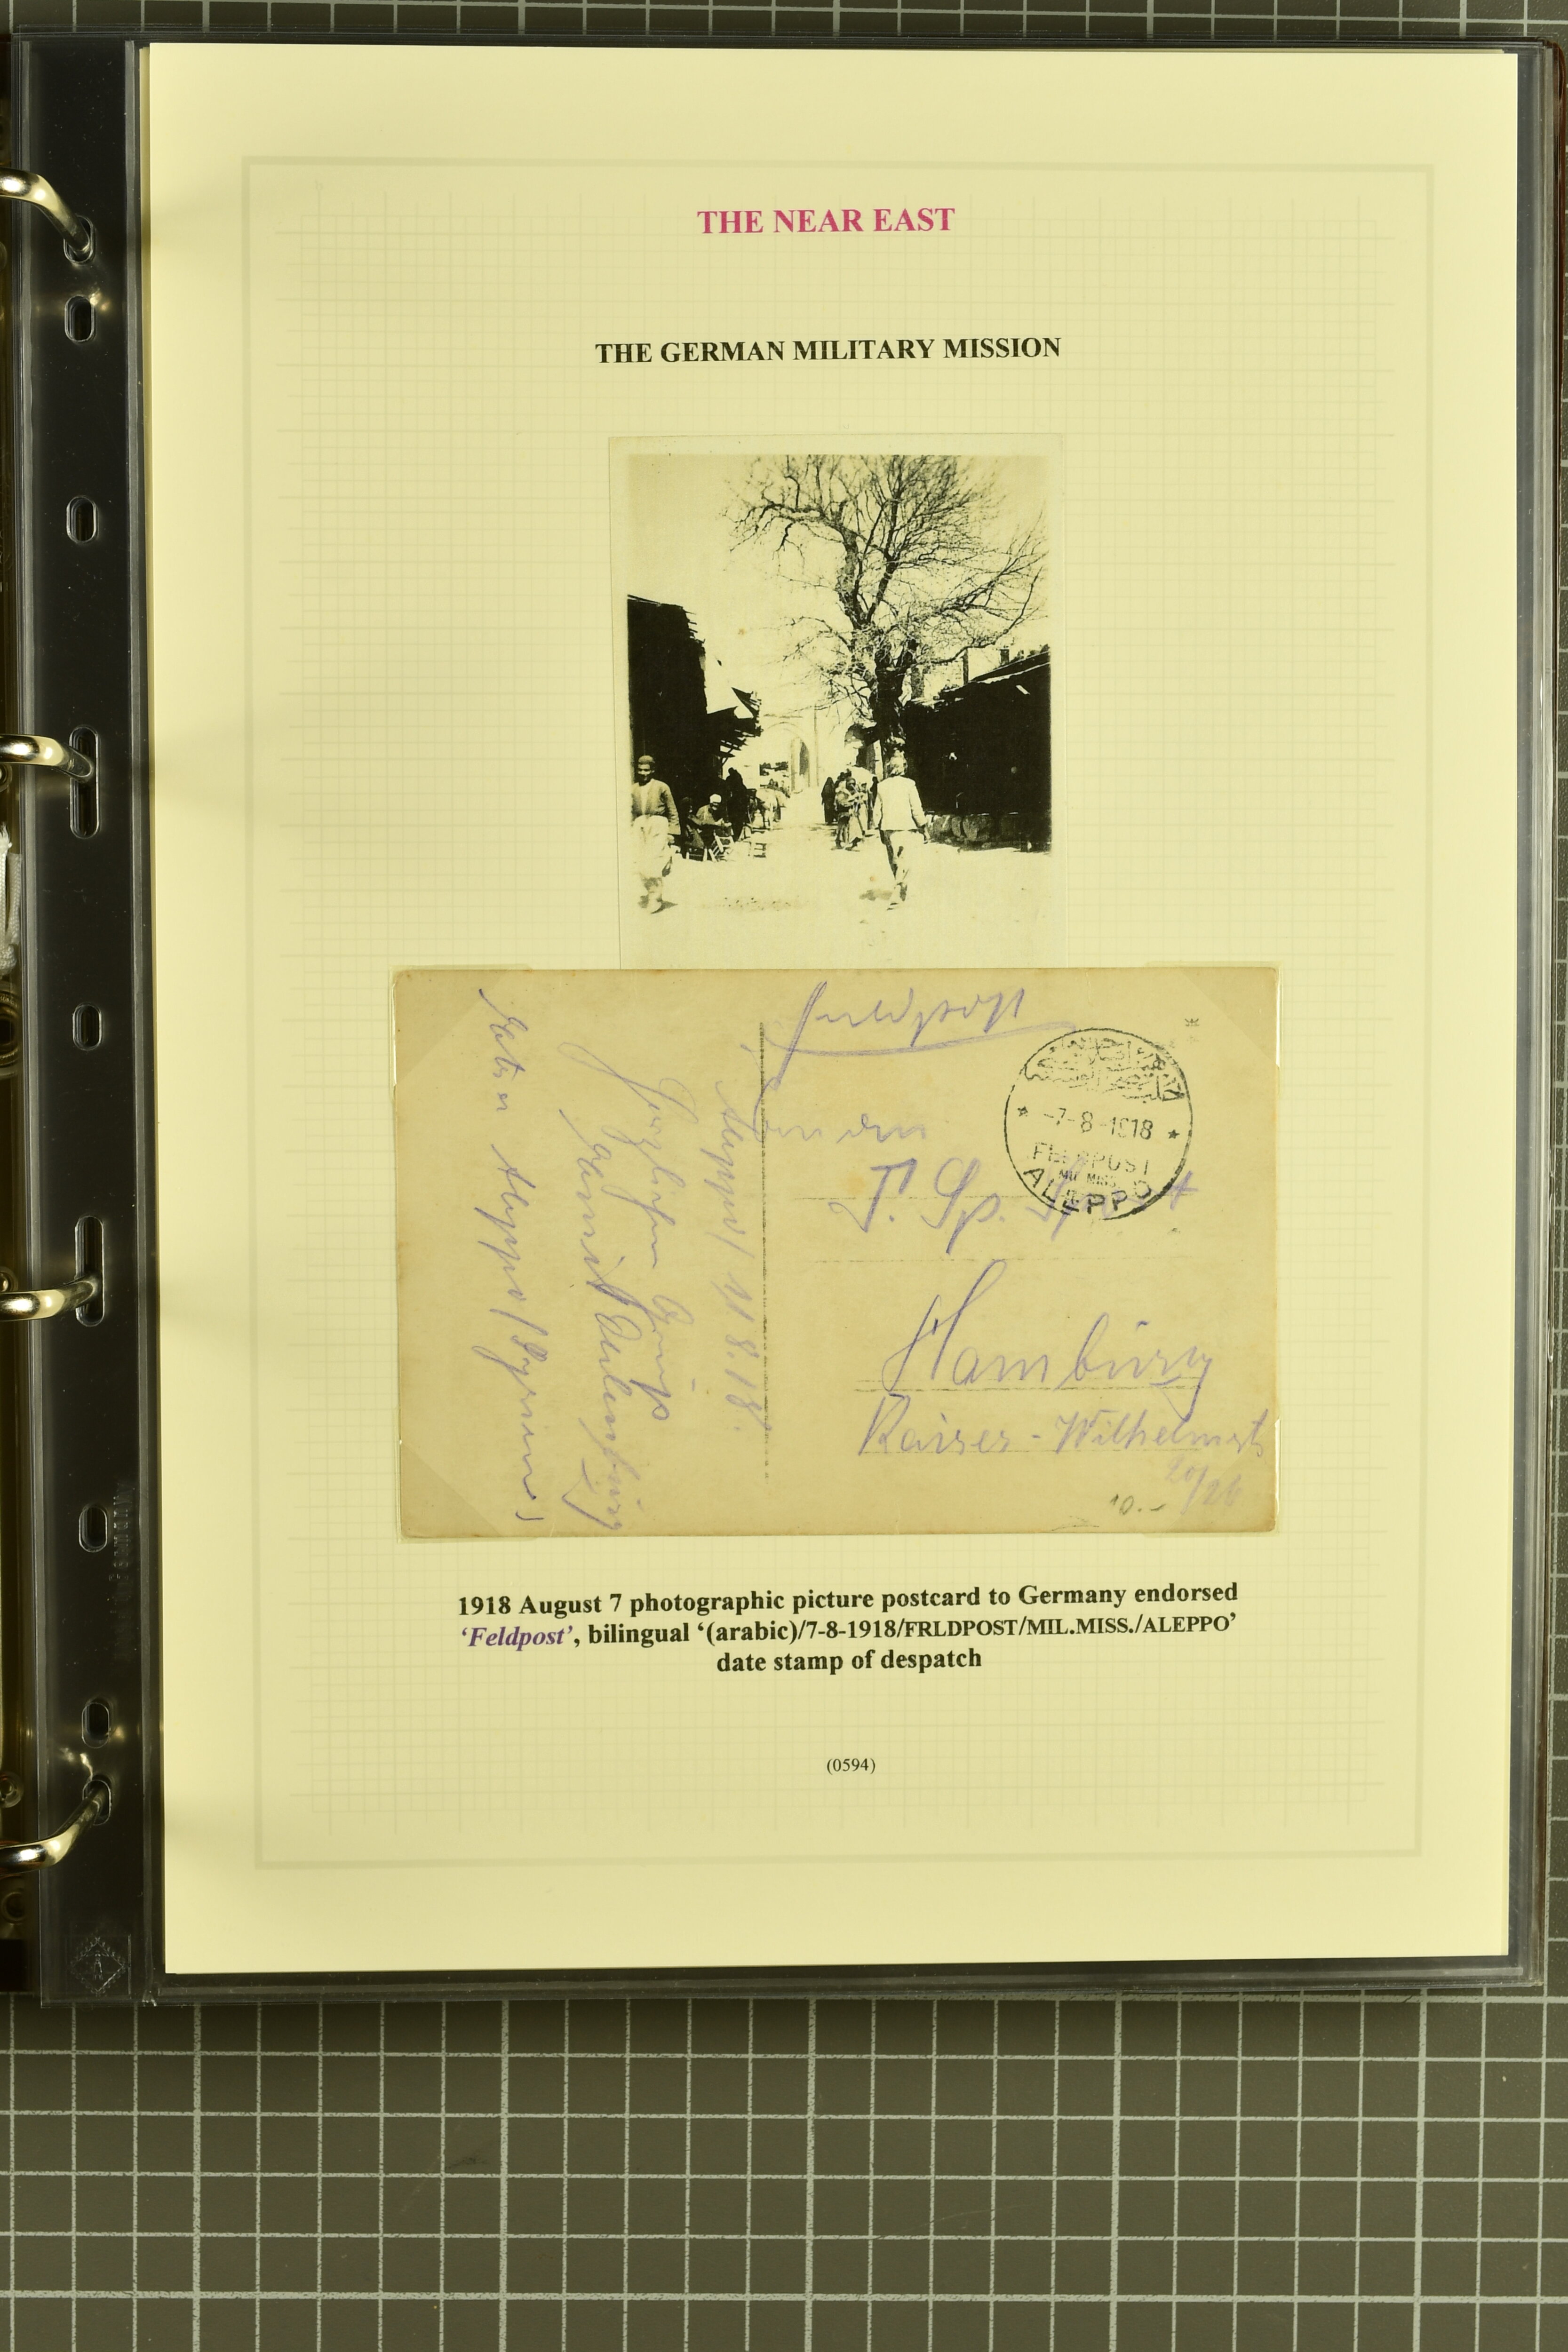 THE NEAR EAST
THE GERMAN MILITARY MISSION
Feldpost
-7-8-1918
FELDPOST
MIL. MISS.
ALEPPO
An den
T. Sp.
Hamburg
Kaiser-Wilhelmst
20/26
10.-
Aleppo/ 8.18.
Herzlichen Gruß
Aleppo/Syrien)
1918 August 7 photographic picture postcard to Germany endorsed
‘Feldpost’, bilingual ‘(arabic)/7-8-1918/FRLDPOST/MIL.MISS./ALEPPO’
date stamp of despatch
(0594)